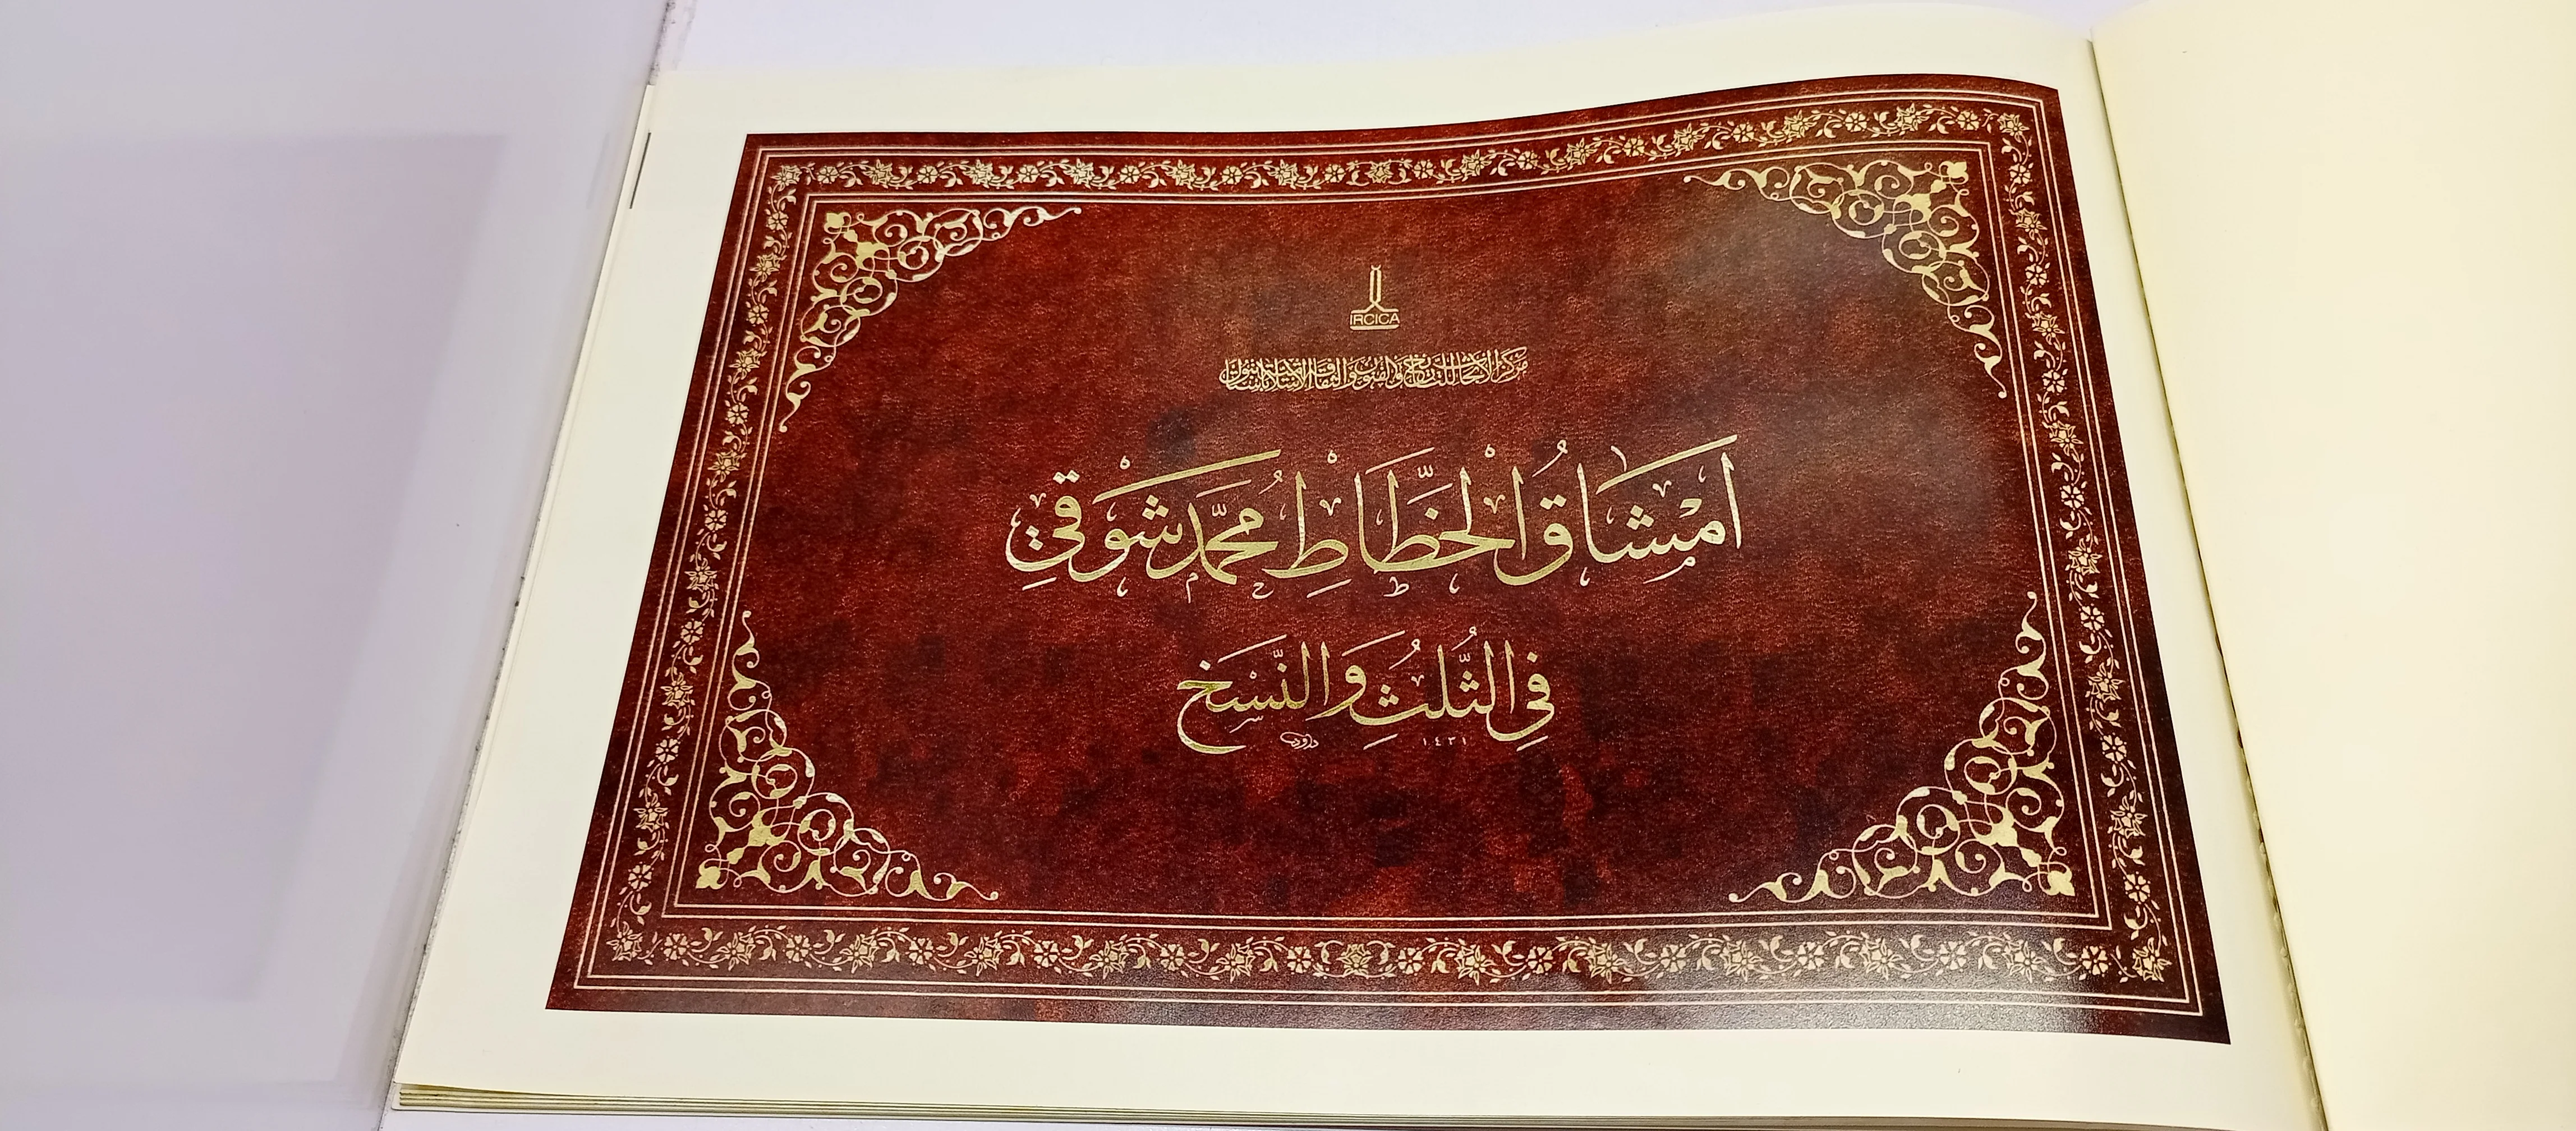 IRCICA
مركز الأبحاث للتاريخ والفنون والثقافة الإسلامية باستانبول
اَمْشَاقُ الْخَطَّاطِ مُحَمَّدْ شَوْقِي
فِي الثُّلُثِ وَالنَّسْخِ
داود ١٤٣١